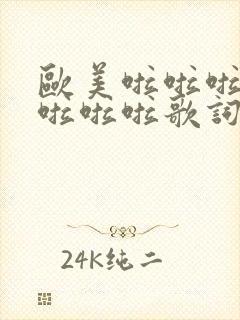 歐美啦啦啦
啦啦啦歌詞
24K纯二